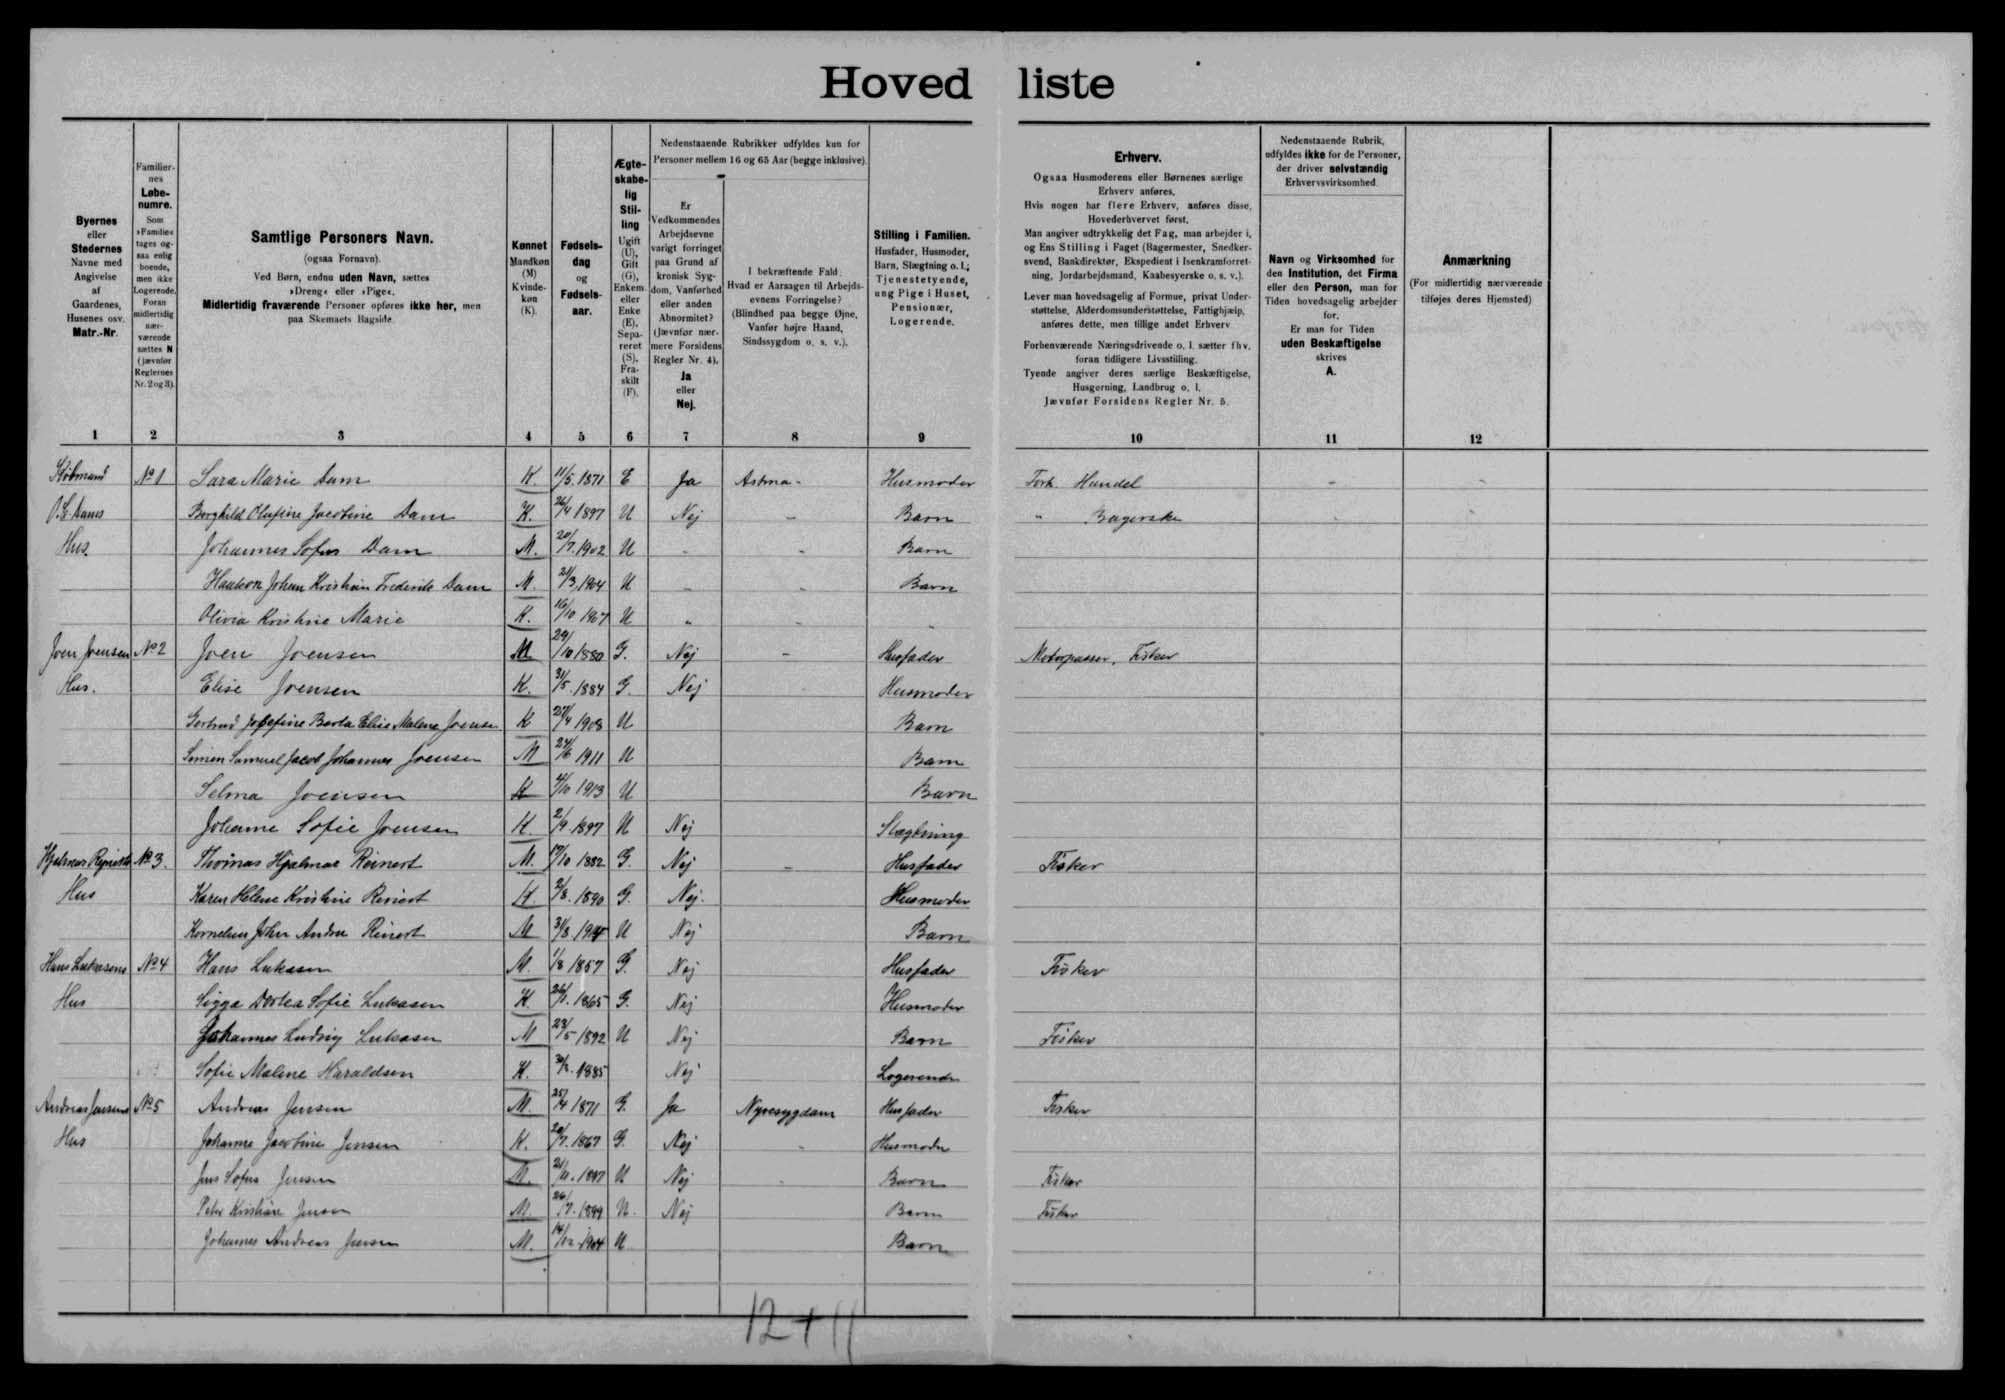 Hoved liste
Byernes eller Stedernes Navne med Angivelse af Gaardenes, Husenes osv. Matr.-Nr.
Familiernes Løbenumre. Som »Familie« tages ogsaa enlig boende, men ikke Logerende. Foran midlertidig nærværende sættes N (jævnfør Reglernes Nr. 2 og 3).
Samtlige Personers Navn.
(ogsaa Fornavn).
Ved Børn, endnu uden Navn, sættes
»Dreng« eller »Pige«.
Midlertidig fraværende Personer opføres ikke her, men
paa Skemaets Bagside.
Kønnet Mandkøn (M) Kvindekøn (K).
Fødselsdag og Fødselsaar.
Ægteskabelig Stilling Ugift (U), Gift (G), Enkem. eller Enke (E), Separeret (S), Fraskilt (F).
Nedenstaaende Rubrikker udfyldes kun for
Personer mellem 16 og 65 Aar (begge inklusive).
Er Vedkommendes Arbejdsevne varigt forringet paa Grund af kronisk Sygdom, Vanførhed eller anden Abnormitet? (Jævnfør nærmere Forsidens Regler Nr. 4). Ja eller Nej.
I bekræftende Fald: Hvad er Aarsagen til Arbejdsevnens Forringelse? (Blindhed paa begge Øjne, Vanfør højre Haand, Sindssygdom o. s. v.).
Stilling i Familien.
Husfader, Husmoder, Barn, Slægtning o. l.; Tjenestetyende, ung Pige i Huset, Pensionær, Logerende.
Erhverv.
Ogsaa Husmoderens eller Børnenes særlige
Erhverv anføres.
Hvis nogen har flere Erhverv, anføres disse,
Hovederhvervet først.
Man angiver udtrykkelig det Fag, man arbejder i,
og Ens Stilling i Faget (Bagermester, Snedker-
svend, Bankdirektør, Ekspedient i Isenkramforret-
ning, Jordarbejdsmand, Kaabesyerske o. s. v.).
Lever man hovedsagelig af Formue, privat Under-
støttelse, Alderdomsunderstøttelse, Fattighjælp,
anføres dette, men tillige andet Erhverv
Forhenværende Næringsdrivende o. l. sætter fhv.
foran tidligere Livsstilling.
Tyende angiver deres særlige Beskæftigelse,
Husgerning, Landbrug o. l.
Jævnfør Forsidens Regler Nr. 5.
Nedenstaaende Rubrik,
udfyldes ikke for de Personer,
der driver selvstændig
Erhvervsvirksomhed.
Navn og Virksomhed for
den Institution, det Firma
eller den Person, man for
Tiden hovedsagelig arbejder
for.
Er man for Tiden
uden Beskæftigelse
skrives
A.
Anmærkning
(For midlertidig nærværende
tilføjes deres Hjemsted)
1 2 3 4 5 6 7 8 9 10 11 12
Købmand No 1 Sara Marie Dam K. 11/5. 1871 E Ja Astma - Husmoder Forh. Handel - -
Dams Borghild Olufine Jacobine Dam K. 26/4 1897 U Nej - Barn " Bagerske
Hus. Johannes Sofus Dam M. 20/7. 1902 U - - Barn
Haakon Johan Kristian Frederik Dam M. 21/3. 1904 U - - Barn
Olivia Kristine Marie K. 16/10 1907 U " - "
Joen Joensen No 2 Joen Joensen M 29/10 1880 G. Nej - Husfader Motorpasser, Fisker
Hus. Elise Joensen K. 31/5. 1884 G. Nej Husmoder
Gertrud Josefine Berta Elise Malene Joensen K 27/4 1908 U Barn
Simon Samuel Jacob Johannes Joensen M 24/6 1911 U Barn
Selma Joensen K 4/10 1913 U Barn
Johanne Sofie Joensen K. 2/9. 1897 U Nej Slægtning
Hjalmar No 3. Thomas Hjalmar Reinert M. 17/10 1882 G. Nej - Husfader Fisker
Hus Karen Helene Kristine Reinert K. 2/8. 1890 G. Nej. Husmoder
Kornelius John Andrea Reinert M 31/8 U Nej Barn
Hans Lukasens No 4 Hans Lukasen M. 1/8 1857 G. Nej Husfader Fisker
Hus Sigga Dortea Sofie Lukasen K 26/1. 1865 G. Nej Husmoder
Johannes Ludvig Lukasen M 23/5 1892 U Nej Barn Fisker
Sofie Malene Haraldsen K. 1885 Nej Logerende
Andreas Jensens No 5 Andreas Jensen M. 25/4 1871 G. Ja Nyresygdom Husfader Fisker
Hus Johanne Jacobine Jensen K. 20/7. 1867 G. Nej - Husmoder
Jens Sofus Jensen M. 21/11. 1897 U Nej - Barn Fisker
Peter Kristian Jensen M. 26/7. 1899 U. Nej Barn Fisker
Johannes Andreas Jensen M. 14/12. 1904 U. Barn
12 + 11